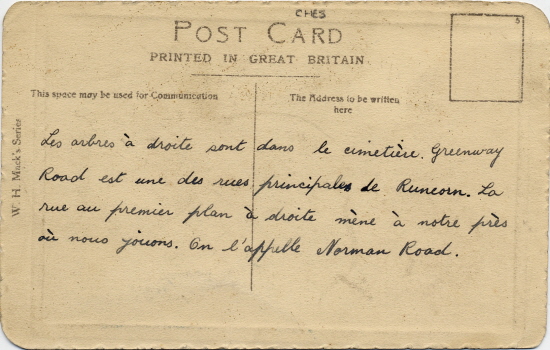 CHES
POST CARD
PRINTED IN GREAT BRITAIN
This space may be used for Communication
The Address to be written
here
W. H. Mack's Series
Les arbres à droite sont dans le cimetière. Greenway
Road est une des rues principales de Runcorn. La
rue au premier plan à droite mène à notre près
où nous jouons. On l'appelle Norman Road.